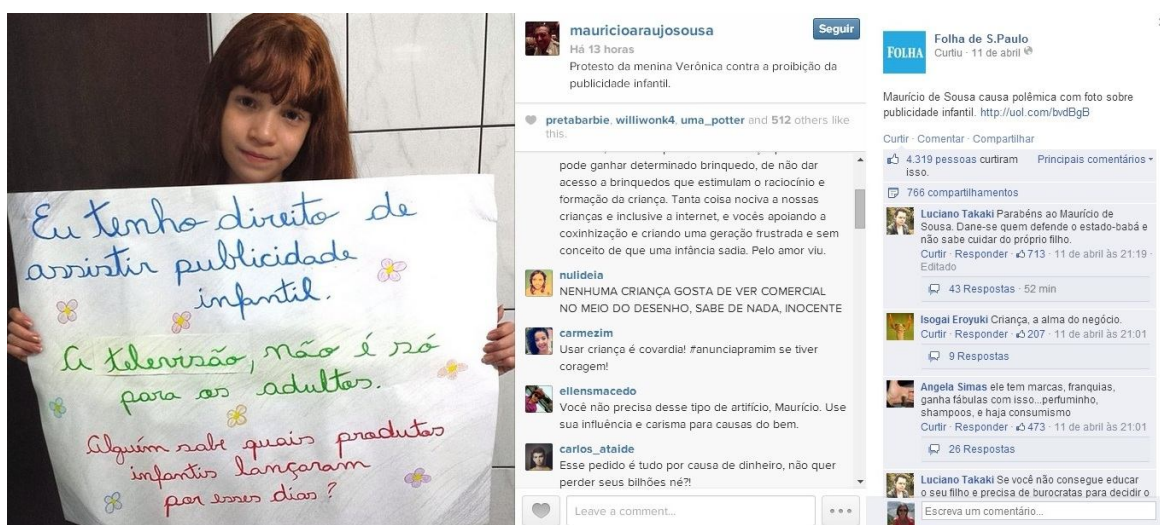 Eu tenho direito de
assistir publicidade
infantil.
A televisão, não é só
para os adultos.
Alguém sabe quais produtos
infantis lançaram
por esses dias?
mauricioaraujosousa
Seguir
Há 13 horas
Protesto da menina Verônica contra a proibição da
publicidade infantil.
pretabarbie, williwonk4, uma_potter and 512 others like
this.
pode ganhar determinado brinquedo, de não dar
acesso a brinquedos que estimulam o raciocínio e
formação da criança. Tanta coisa nociva a nossas
crianças e inclusive a internet, e vocês apoiando a
coxinhização e criando uma geração frustrada e sem
conceito de que uma infância sadia. Pelo amor viu.
nulideia
NENHUMA CRIANÇA GOSTA DE VER COMERCIAL
NO MEIO DO DESENHO, SABE DE NADA, INOCENTE
carmezim
Usar criança é covardia! #anunciapramim se tiver
coragem!
ellensmacedo
Você não precisa desse tipo de artifício, Maurício. Use
sua influência e carisma para causas do bem.
carlos_ataide
Esse pedido é tudo por causa de dinheiro, não quer
perder seus bilhões né?!
Leave a comment...
FOLHA
Folha de S.Paulo
Curtiu · 11 de abril
Maurício de Sousa causa polêmica com foto sobre
publicidade infantil. http://uol.com/bvdBgB
Curtir · Comentar · Compartilhar
4.319 pessoas curtiram
isso.
Principais comentários
766 compartilhamentos
Luciano Takaki Parabéns ao Maurício de
Sousa. Dane-se quem defende o estado-babá e
não sabe cuidar do próprio filho.
Curtir · Responder · 713 · 11 de abril às 21:19 ·
Editado
43 Respostas · 52 min
Isogai Eroyuki Criança, a alma do negócio.
Curtir · Responder · 207 · 11 de abril às 21:01
9 Respostas
Angela Simas ele tem marcas, franquias,
ganha fábulas com isso...perfuminho,
shampoos, e haja consumismo
Curtir · Responder · 473 · 11 de abril às 21:01
26 Respostas
Luciano Takaki Se você não consegue educar
o seu filho e precisa de burocratas para decidir o
Escreva um comentário...